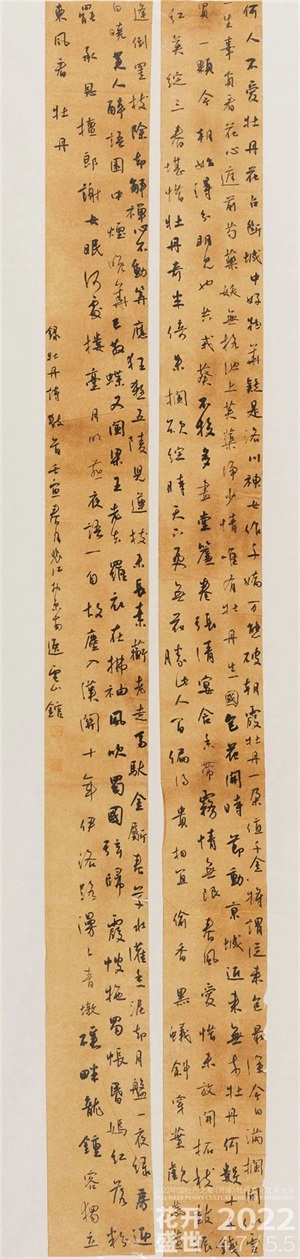 何人不愛牡丹花占斷城中好物華疑是洛川神女作千嬌萬態破朝霞牡丹一朵值千金將謂從來色最深今日滿欄開似雪
一生辜負看花心庭前芍藥妖無格池上芙蕖淨少情唯有牡丹真國色花開時節動京城近來無奈牡丹何數十千錢
買一顆今朝始得分明見也共戎葵不較多畫堂簾卷張清宴含香帶霧情無限春風愛惜未放開柘枝鼓振
紅英綻三春堪惜牡丹奇半倚朱欄欲綻時天下更無花勝此人間偏得貴相宜偷香黑蟻斜穿葉覷蕊黃
蜂倒掛枝除却解禪心不動算應狂殺五陵兒蓮枝未長秦蘅老走馬馱金斸春草水灌香泥却月盤一夜綠房迎
白曉美人醉語園中煙晚華已散蝶又闌梁王老去羅衣在拂袖風吹蜀國弦歸霞帔拖蜀帳昏嫣紅落粉
罷承恩檀郎謝女眠何處樓臺月明燕夜語一自胡塵入漢關十年伊洛路漫漫青墩溪畔龍鍾客獨立
東風看牡丹
錄牡丹詩數首壬寅春月
雲山館
花开 2022
盛世 4755.5